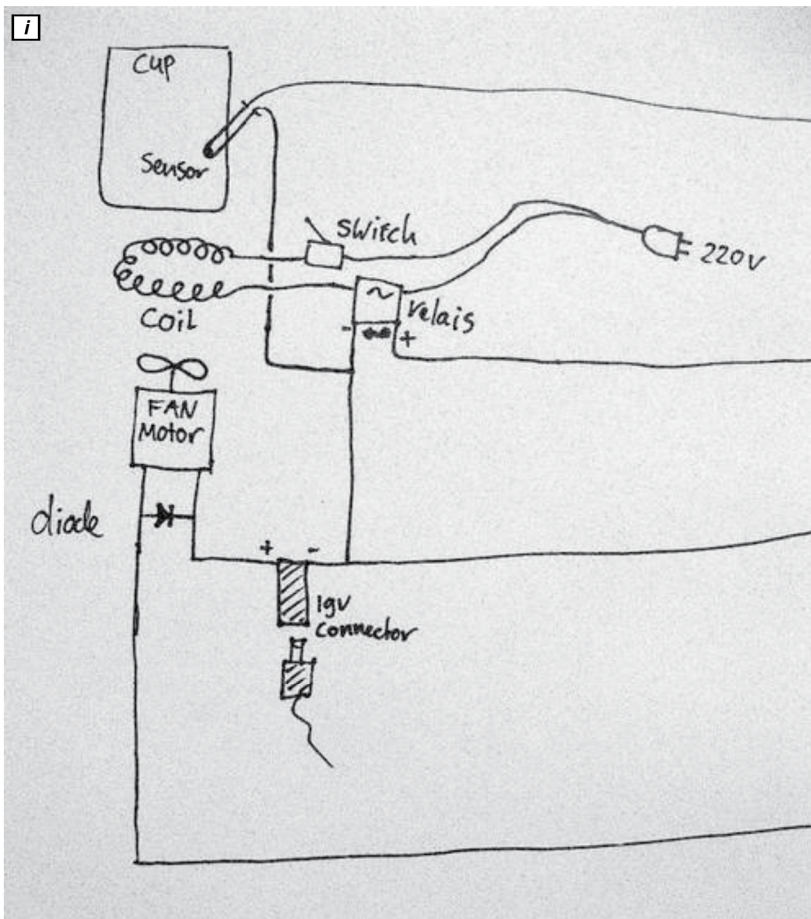 i
CUP
Sensor
Switch
220V
~
relais
- +
Coil
FAN
Motor
diode
+ -
19V
Connector